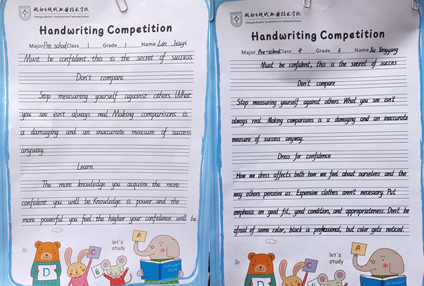 Handwriting Competition
Major Pre school Class 1 Grade 1 Name
Must be confident, this is the secret of success
Don't compare
Stop measuring yourself against others. What
you see isn't always real. Making comparisons is
a damaging and an inaccurate measure of success
anyway.
Learn
The more knowledge you acquire, the more
confident you will be. Knowledge is power, and the
more powerful you feel, the higher your confidence will be
let's
study
A
B
C
D
Handwriting Competition
Major Pre-school Class 4 Grade Name
Must be confident, this is the secret of succes
Don't compare
Stop measuring yourself against others. What you see isn't
always real. Making comparisons is a damaging and an inaccurate
measure of success anyway.
Dress for confidence
How we dress affects both how we feel about ourselves and the
way others perceive us. Expensive clothes aren't necessary. Put
emphasis on good fit, good condition, and appropriateness. Don't be
afraid of some color, black is professional, but color gets noticed.
let's
study
A
B
C
D